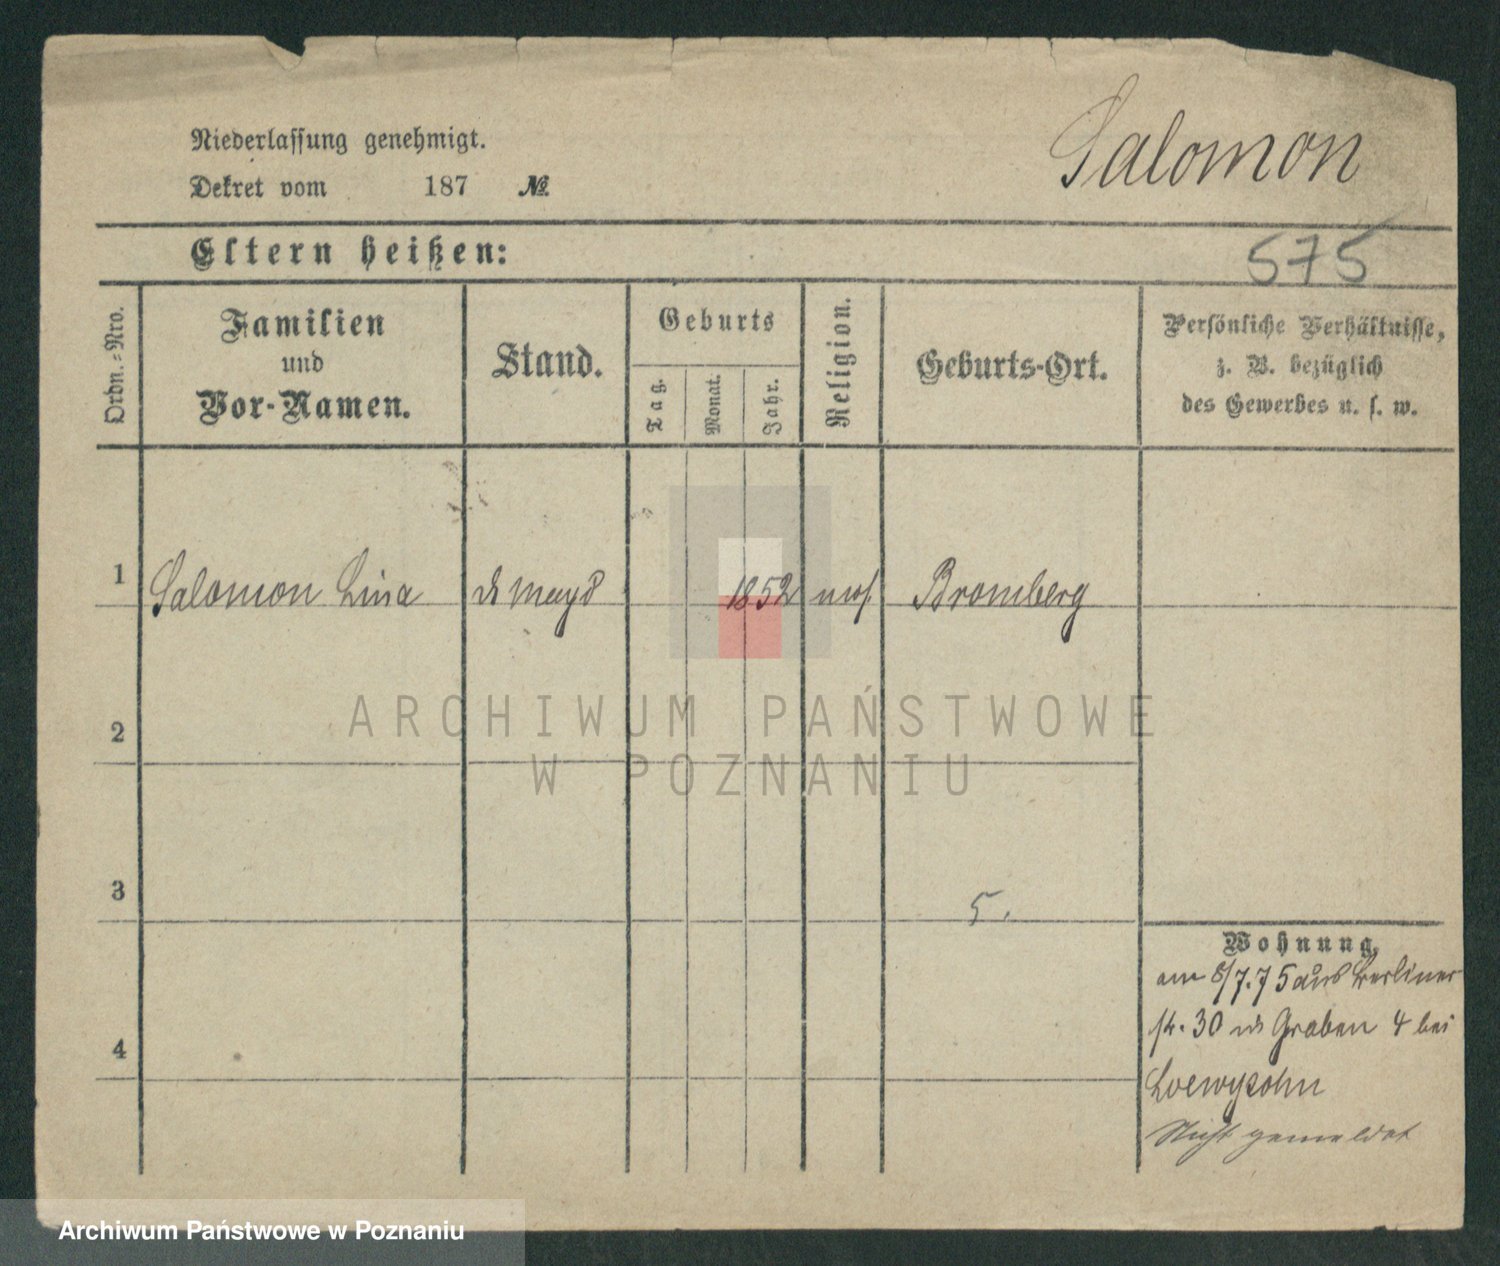 Salomon
Niederlassung genehmigt.
Dekret vom 187 №
Eltern heißen:
575
Ordn.-Nro.
Familien
und
Vor-Namen.
Stand.
Geburts
Tag.
Monat.
Jahr.
Religion.
Geburts-Ort.
Persönliche Verhältnisse,
z. B. bezüglich
des Gewerbes u. s. w.
1 Salomon Lina 1852 mos. Bromberg
2
3
5.
4
Wohnung.
am 8/7.75 aus Berliner
30 Graben 4 bei
Loewysohn
Nicht gemeldet
ARCHIWUM PAŃSTWOWE
W POZNANIU
Archiwum Państwowe w Poznaniu